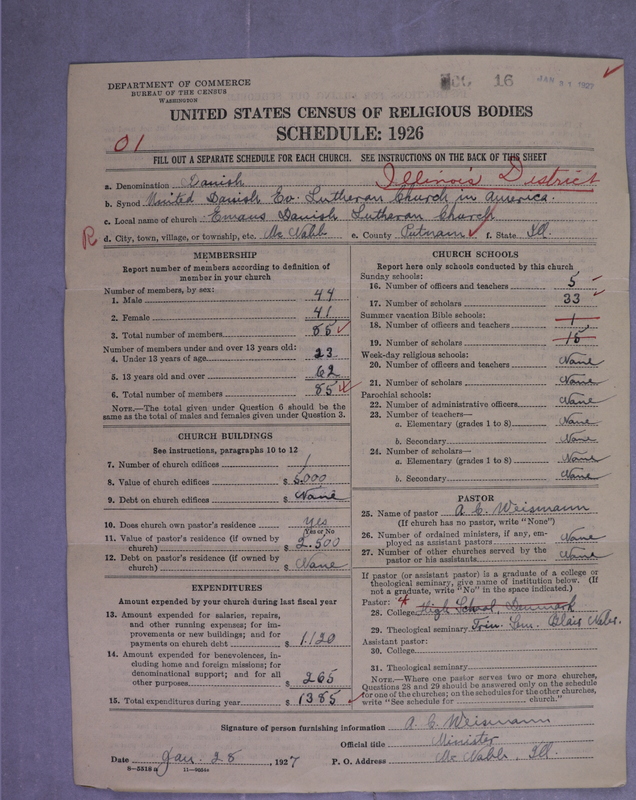 DEPARTMENT OF COMMERCE
BUREAU OF THE CENSUS
WASHINGTON
16
JAN 31 1927
UNITED STATES CENSUS OF RELIGIOUS BODIES
SCHEDULE: 1926
01
FILL OUT A SEPARATE SCHEDULE FOR EACH CHURCH. SEE INSTRUCTIONS ON THE BACK OF THIS SHEET
a. Denomination Danish Illinois District
b. Synod United Danish Ev. Lutheran Church in America.
c. Local name of church Emaus Danish Lutheran Church
R d. City, town, village, or township, etc. Mc Nabb e. County Putnam f. State Ill.
MEMBERSHIP
Report number of members according to definition of member in your church
Number of members, by sex:
1. Male 44
2. Female 41
3. Total number of members 85
Number of members under and over 13 years old:
4. Under 13 years of age 23
5. 13 years old and over 62
6. Total number of members 85
NOTE.—The total given under Question 6 should be the same as the total of males and females given under Question 3.
CHURCH BUILDINGS
See instructions, paragraphs 10 to 12
7. Number of church edifices 1
8. Value of church edifices $ 5,000
9. Debt on church edifices $ None
10. Does church own pastor's residence Yes
Yes or No
11. Value of pastor's residence (if owned by church) $ 2.500
12. Debt on pastor's residence (if owned by church) $ None
EXPENDITURES
Amount expended by your church during last fiscal year
13. Amount expended for salaries, repairs, and other running expenses; for improvements or new buildings; and for payments on church debt $ 1.120
14. Amount expended for benevolences, including home and foreign missions; for denominational support; and for all other purposes $ 265
15. Total expenditures during year $ 1385
CHURCH SCHOOLS
Report here only schools conducted by this church
Sunday schools:
16. Number of officers and teachers 5
17. Number of scholars 33
Summer vacation Bible schools:
18. Number of officers and teachers 1
19. Number of scholars 15
Week-day religious schools:
20. Number of officers and teachers None
21. Number of scholars None
Parochial schools:
22. Number of administrative officers None
23. Number of teachers—
a. Elementary (grades 1 to 8) None
b. Secondary None
24. Number of scholars—
a. Elementary (grades 1 to 8) None
b. Secondary None
PASTOR
25. Name of pastor A. C. Weismann
(If church has no pastor, write "None")
26. Number of ordained ministers, if any, employed as assistant pastors None
27. Number of other churches served by the pastor or his assistants None
If pastor (or assistant pastor) is a graduate of a college or theological seminary, give name of institution below. (If not a graduate, write "No" in the space indicated.)
Pastor:
28. College High School Denmark
29. Theological seminary Trin. Sem. Blair Nebr.
Assistant pastor:
30. College
31. Theological seminary
NOTE.—Where one pastor serves two or more churches, Questions 28 and 29 should be answered only on the schedule for one of the churches; on the schedules for the other churches, write "See schedule for church."
Signature of person furnishing information A. C. Weismann
Official title Minister
Date Jan. 28, 1927 P. O. Address Mc Nabb, Ill.
8—5518a 11—9604